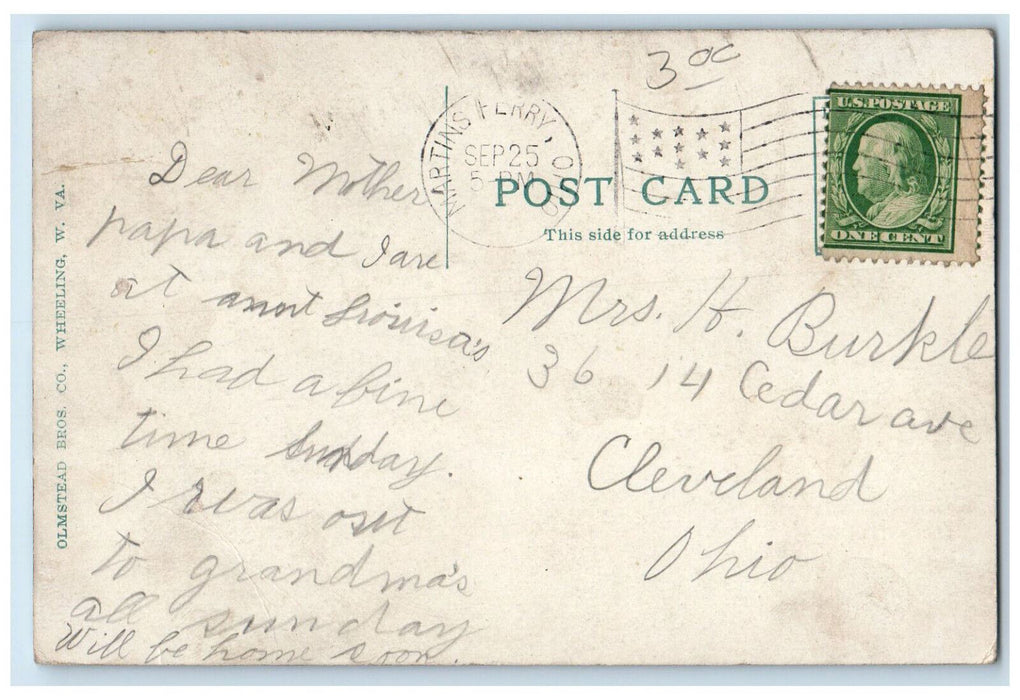 OLMSTEAD BROS. CO., WHEELING, W. VA.
3 oc
MARTINS FERRY, OHIO
SEP 25
5-PM
U.S. POSTAGE
ONE CENT
POST CARD
This side for address
Dear Mother
papa and I are
at aunt Louisa's
I had a fine
time Sunday.
I was out
to grandma's
all sunday
Will be home soon.
Mrs. H. Burkle
3614 Cedar ave
Cleveland
Ohio